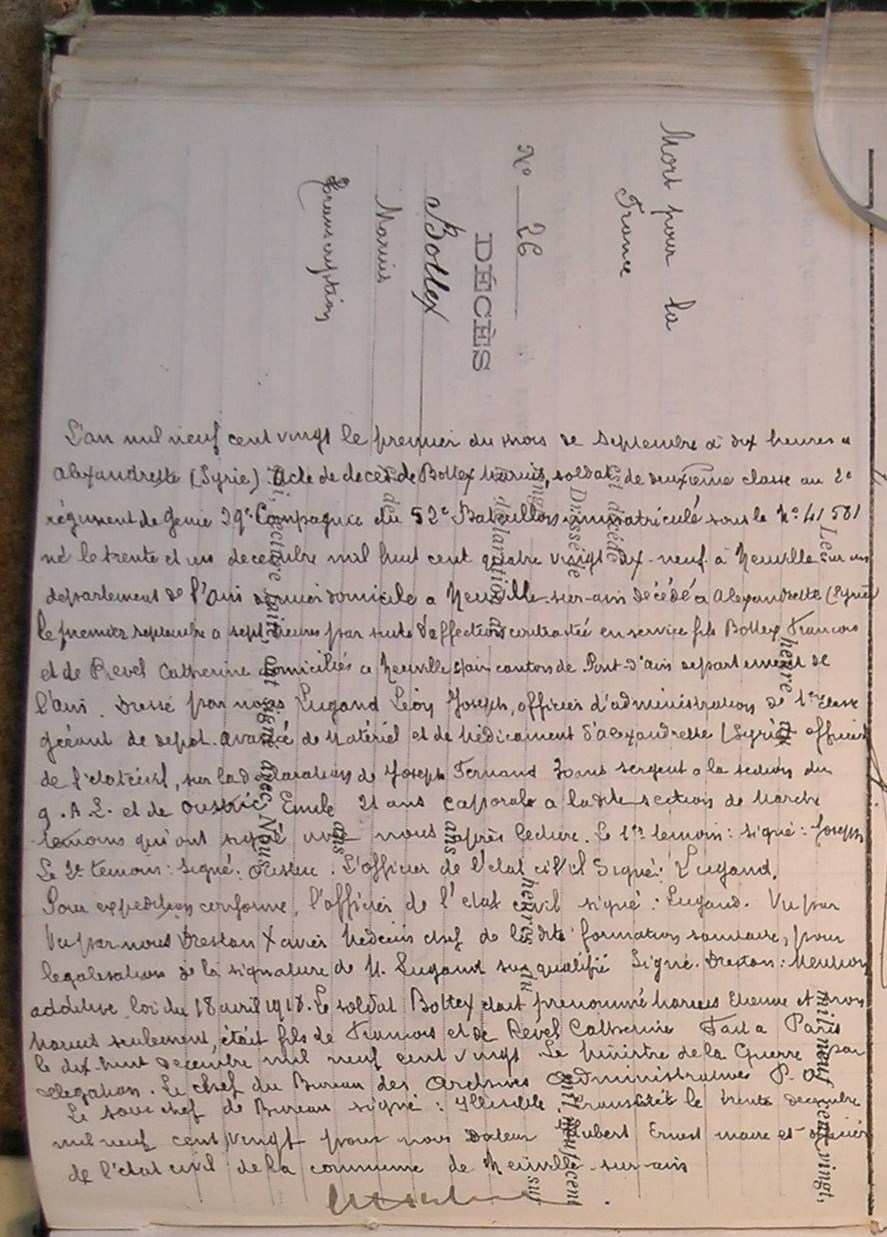 Mort pour la
France
N° 26
DÉCÈS
Bollex
Marius
Transcription
L'an mil neuf cent vingt le premier du mois de Septembre à dix heures a
Alexandrette (Syrie) Acte de décès de Bollex Marius, soldat de deuxième classe au 2e
régiment de Génie 29e Compagnie du 52e Bataillon immatriculé sous le N° 41581
né le trente et un decembre mil huit cent quatre vingt dix-neuf à Neuville sur ain
departement de l'Ain dernier domicile a Neuville-sur-ain décédé a Alexandrette (Syrie)
le premier septembre a sept heures par suite d'affection contractée en service fils Bollex François
et de Revel Catherine domiciliés a Neuville s/ain canton de Pont-d'ain departement de
l'ain. Dressé par nous Lugand Léon Joseph, officier d'administration de 1re classe
gérant de depot avancé de Matériel et de Médicament d'Alexandrette (Syrie) officier
de l'état civil, sur la déclaration de Joseph Fernand 30 ans sergent a la section du
g. A. L. et de Emile 21 ans caporal a ladite section de Marche
temoins qui ont signé avec nous après lecture. Le 1er temoin : signé : Joseph
Le 2e temoin : signé : . L'officier de l'état civil Signé : Lugand.
Pour expedition conforme, l'officier de l'état civil signé : Lugand. Vu par
Vu par nous Dreston Xavier Médecin chef de ladite formation sanitaire, pour
legalisation de la signature de M. Lugand sus qualifié Signé. Dreston : Mention
additive loi du 18 avril 1918. Le soldat Bollex était prenommé Marius Etienne et non
Marius seulement, était fils de François et de Revel Catherine Fait a Paris
le dix huit decembre mil neuf cent vingt Le Ministre de la Guerre par
délégation. Le chef du Bureau des Archives Administratives P. O
Le sous chef de Bureau signé : Illisible Transcrit le trente decembre
mil neuf cent vingt par nous Docteur Hubert Ernest maire et officier
de l'état civil de la commune de Neuville-sur-ain
Le
heure
mil neuf cent vingt,
est décédé
Dressé le
heures du
mil neuf cent
sur
la déclaration de
ans
ans
lecture faite, ont signé avec Nous